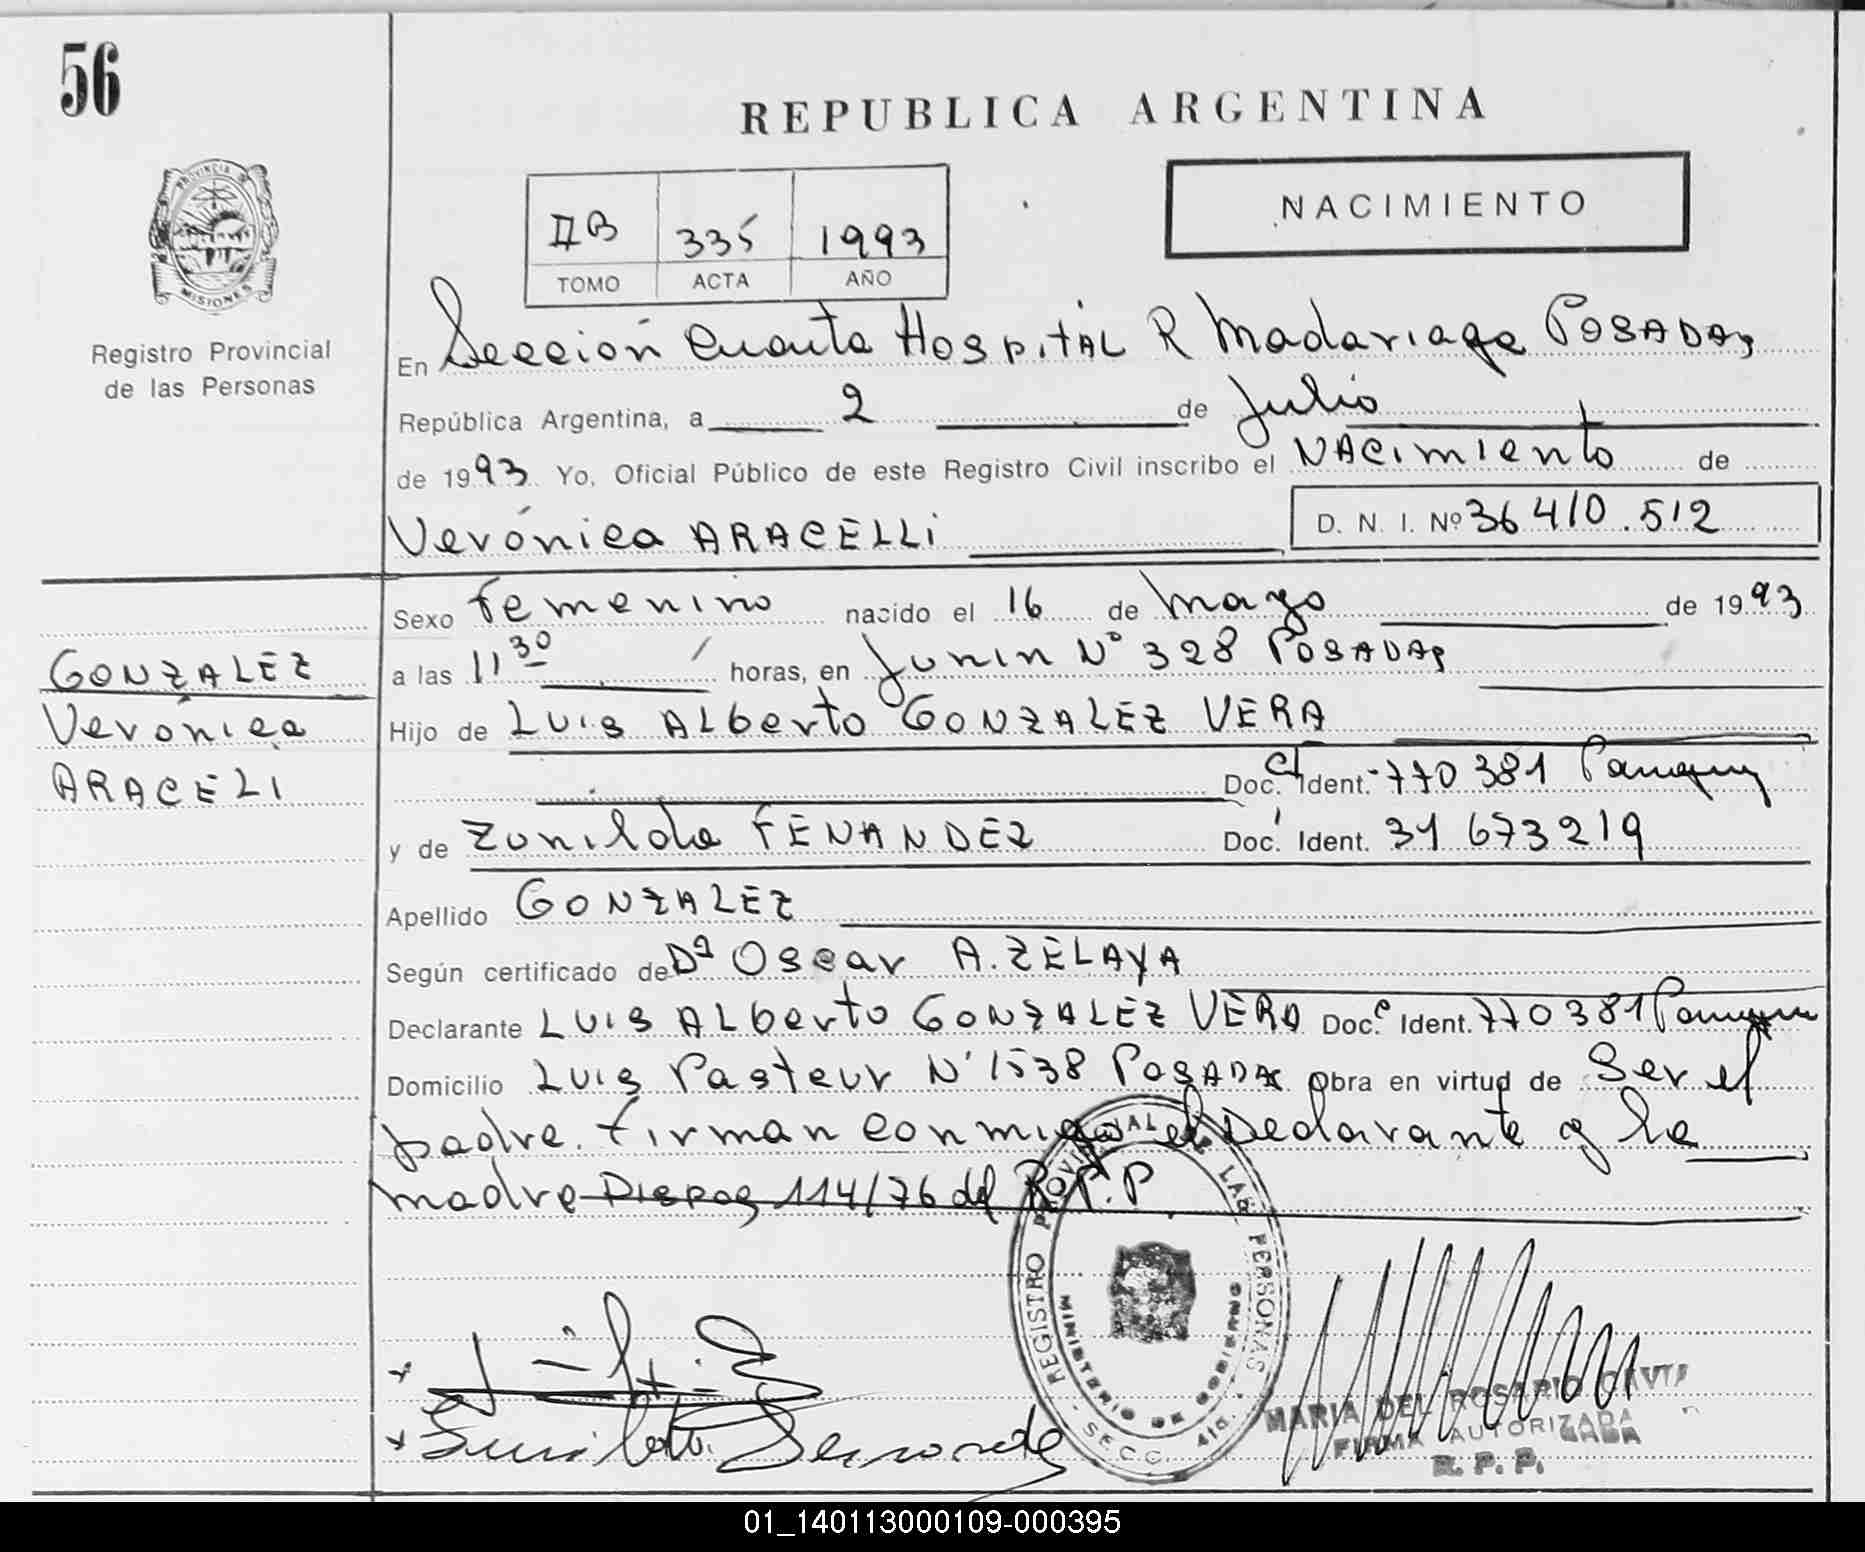 56
REPUBLICA ARGENTINA
PROVINCIA DE
MISIONES
Registro Provincial
de las Personas
II B 335 1993
TOMO ACTA AÑO
NACIMIENTO
En Sección Cuarta Hospital R Madariaga POSADAS
República Argentina, a 2 de Julio
de 1993 Yo, Oficial Público de este Registro Civil inscribo el NACimiento de
Verónica ARACELLi D. N. I. Nº 36 410.512
Sexo femenino nacido el 16 de Mayo de 1993
a las 11 30 horas, en Junin Nº 328 POSADAS
Hijo de Luis ALberto GONZALEZ VERA
Doc. Ident. CI 770 381 Paraguay
y de Zunilda FENANDEZ Doc. Ident. 31 673219
Apellido GONZALEZ
Según certificado de Dª Oscar A. ZELAYA
Declarante LUIS ALberto GONZALEZ VERA Doc. Ident. 770381
Domicilio Luis Pasteur Nº 1538 POSADAS obra en virtud de Ser el
padre. firman conmigo el Declarante y la
madre Dispos 114/76 del R.P.P
GONZALEZ
Verónica
ARACELI
REGISTRO PROVINCIAL DE LAS PERSONAS
MINISTERIO DE GOBIERNO
SECC. 4ta.
MARIA DEL ROSARIO
FIRMA AUTORIZADA
R. P. P.
01_140113000109-000395